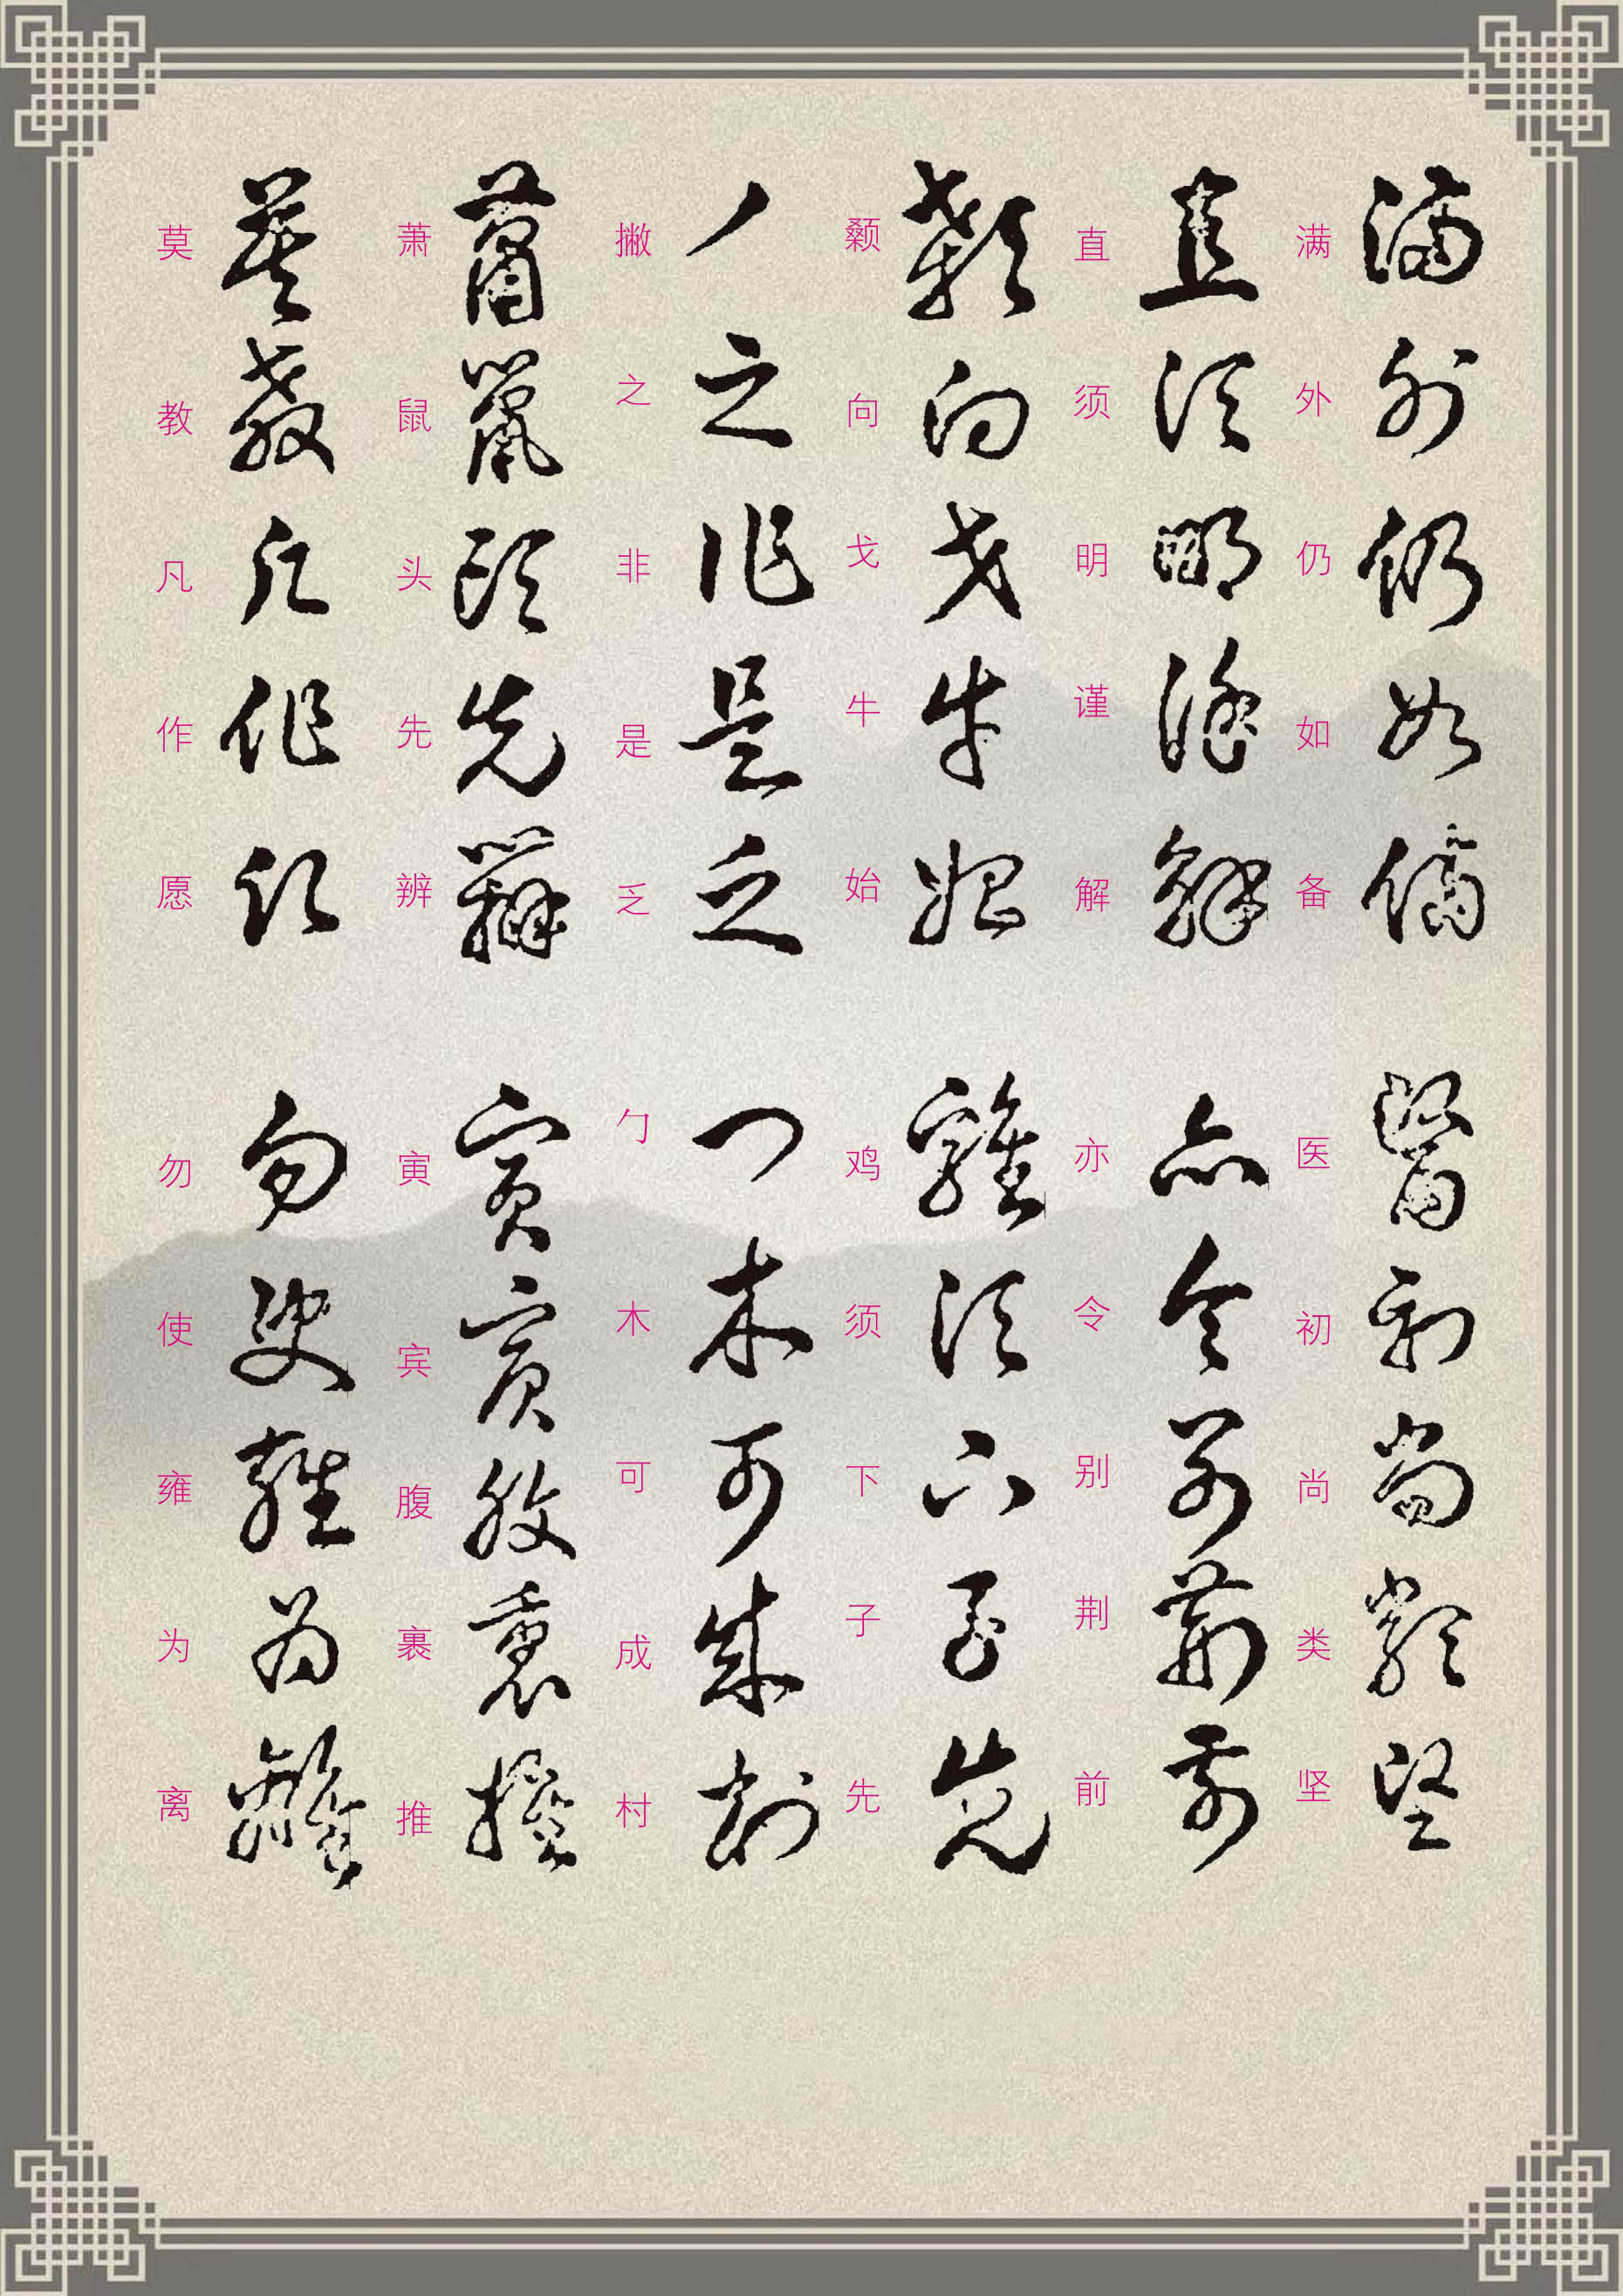 滿外仍如備 醫初尚類堅
满外仍如备 医初尚类坚
直須明謹解 亦令別荊前
直须明谨解 亦令别荆前
顙向戈牛始 雞須下子先
颡向戈牛始 鸡须下子先
丿之非是乏 勹木可成村
撇之非是乏 勹木可成村
蕭鼠頭先辨 寅賓腹裹推
萧鼠头先辨 寅宾腹裹推
莫教凡作願 勿使雍為離
莫教凡作愿 勿使雍为离